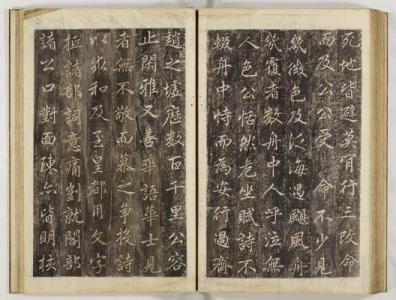 死地皆避莫肯行三改命
而及公公受 命不少見
幾微色及泛海遇颶風舟
幾覆者数舟中人呼泣無
人色公恬然危坐賦詩不
輟舟中恃而為安行過齊
趙之墟歷数百千里公容
止閑雅又善華語華士見
者無不敬而慕之爭投詩
以求和及至皇都用文字
諸部詞意痛就閣部
諸公口對面陳亦皆明核